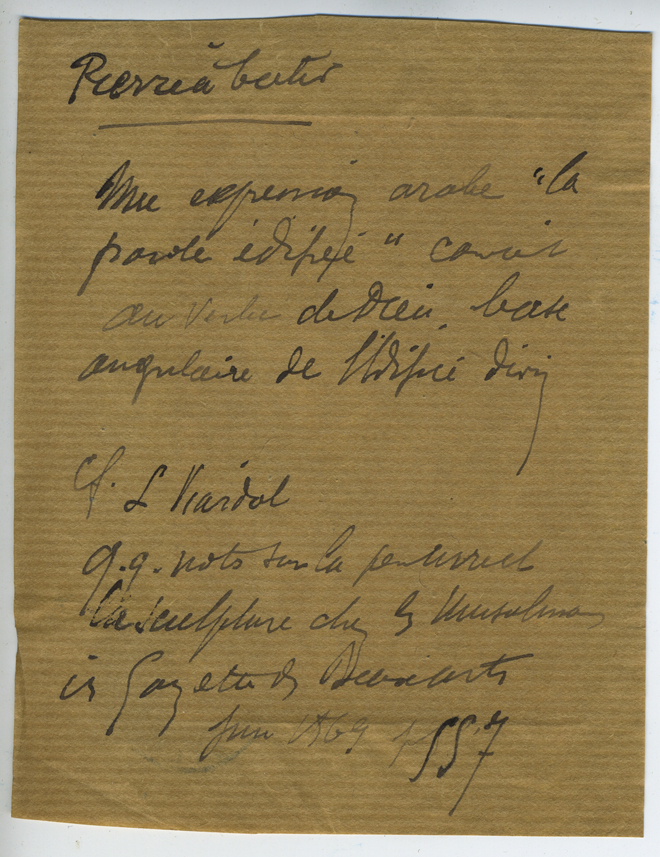 Pierre à batir
Une expression arabe "la
parole édifiée" convient
au Verbe de Dieu, base
angulaire de l'Edifice divin
Cf. L Viardot
q.q. nots sur la peinture et
la sculpture chez les Musulmans
in Gazette des Beaux arts
Juin 1869 p 557